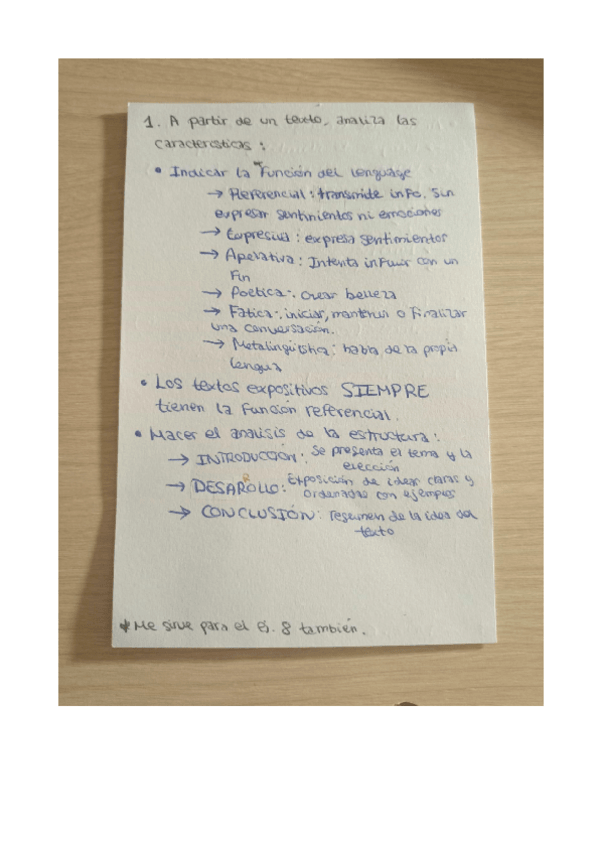 1. A partir de un texto, analiza las
características :
• Indicar la Función del lenguage
→ Referencial : transmide info. Sin
expresar sentimientos ni emociones
→ Expresiva : expresa sentimientos
→ Apelativa : Intenta influir con un
Fin
→ Poética : crear belleza
→ Fática : iniciar, mantener o Finalizar
una conversación.
→ Metalingüística : habla de la propia
lengua
• Los textos expositivos SIEMPRE
tienen la Función referencial.
• Hacer el análisis de la estructura :
→ INTRODUCCIÓN : Se presenta el tema y la
elección
→ DESARROLLO : Exposición de ideas claras y
ordenadas con ejemplos
→ CONCLUSIÓN : resumen de la idea del
texto
* Me sirve para el Ej. 8 también.